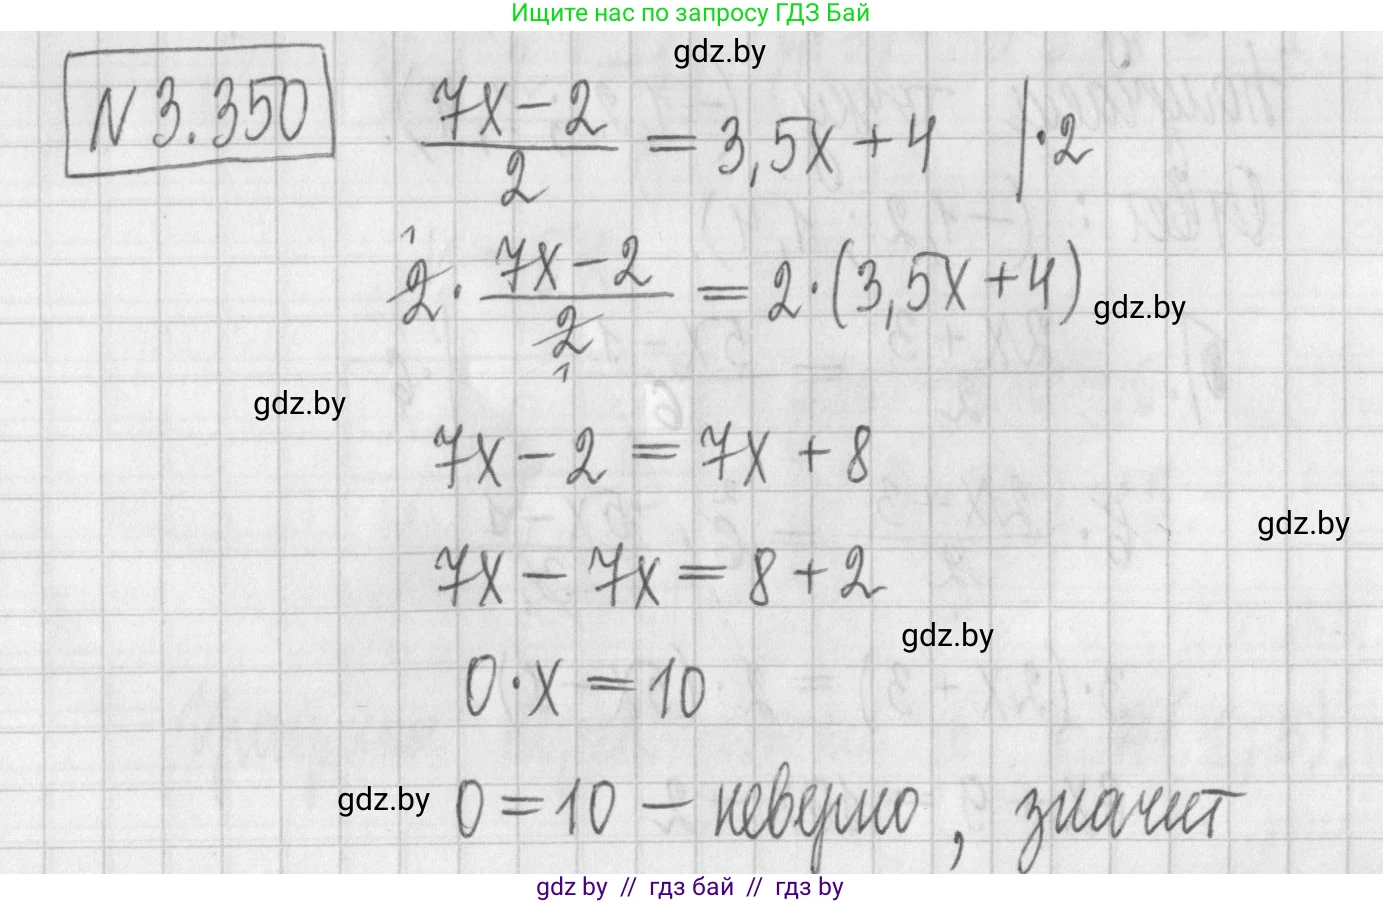 Ищите нас по запросу ГДЗ Бай
gdz.by
N 3.350
7x-2/2 = 3,5x+4 |·2
1
2·7x-2/2 = 2·(3,5x+4)
1
gdz.by
gdz.by
7x-2=7x+8
gdz.by
7x-7x=8+2
gdz.by
0·x=10
gdz.by
0=10 – неверно, значит
gdz by // гдз бай // гдз by